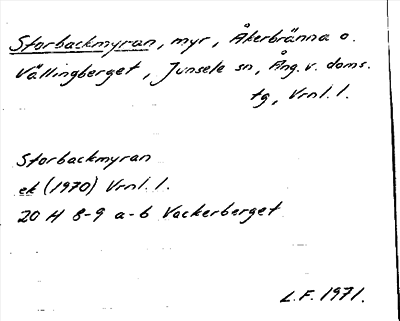 Storbackmyran, myr, Åkerbränna o.
Vällingberget, Junsele sn, Ång. v. doms.
tg, Vrnl. l.
Storbackmyran
ek (1970) Vrnl. l.
20 H 8-9 a-b Vackerberget
L.F. 1971.